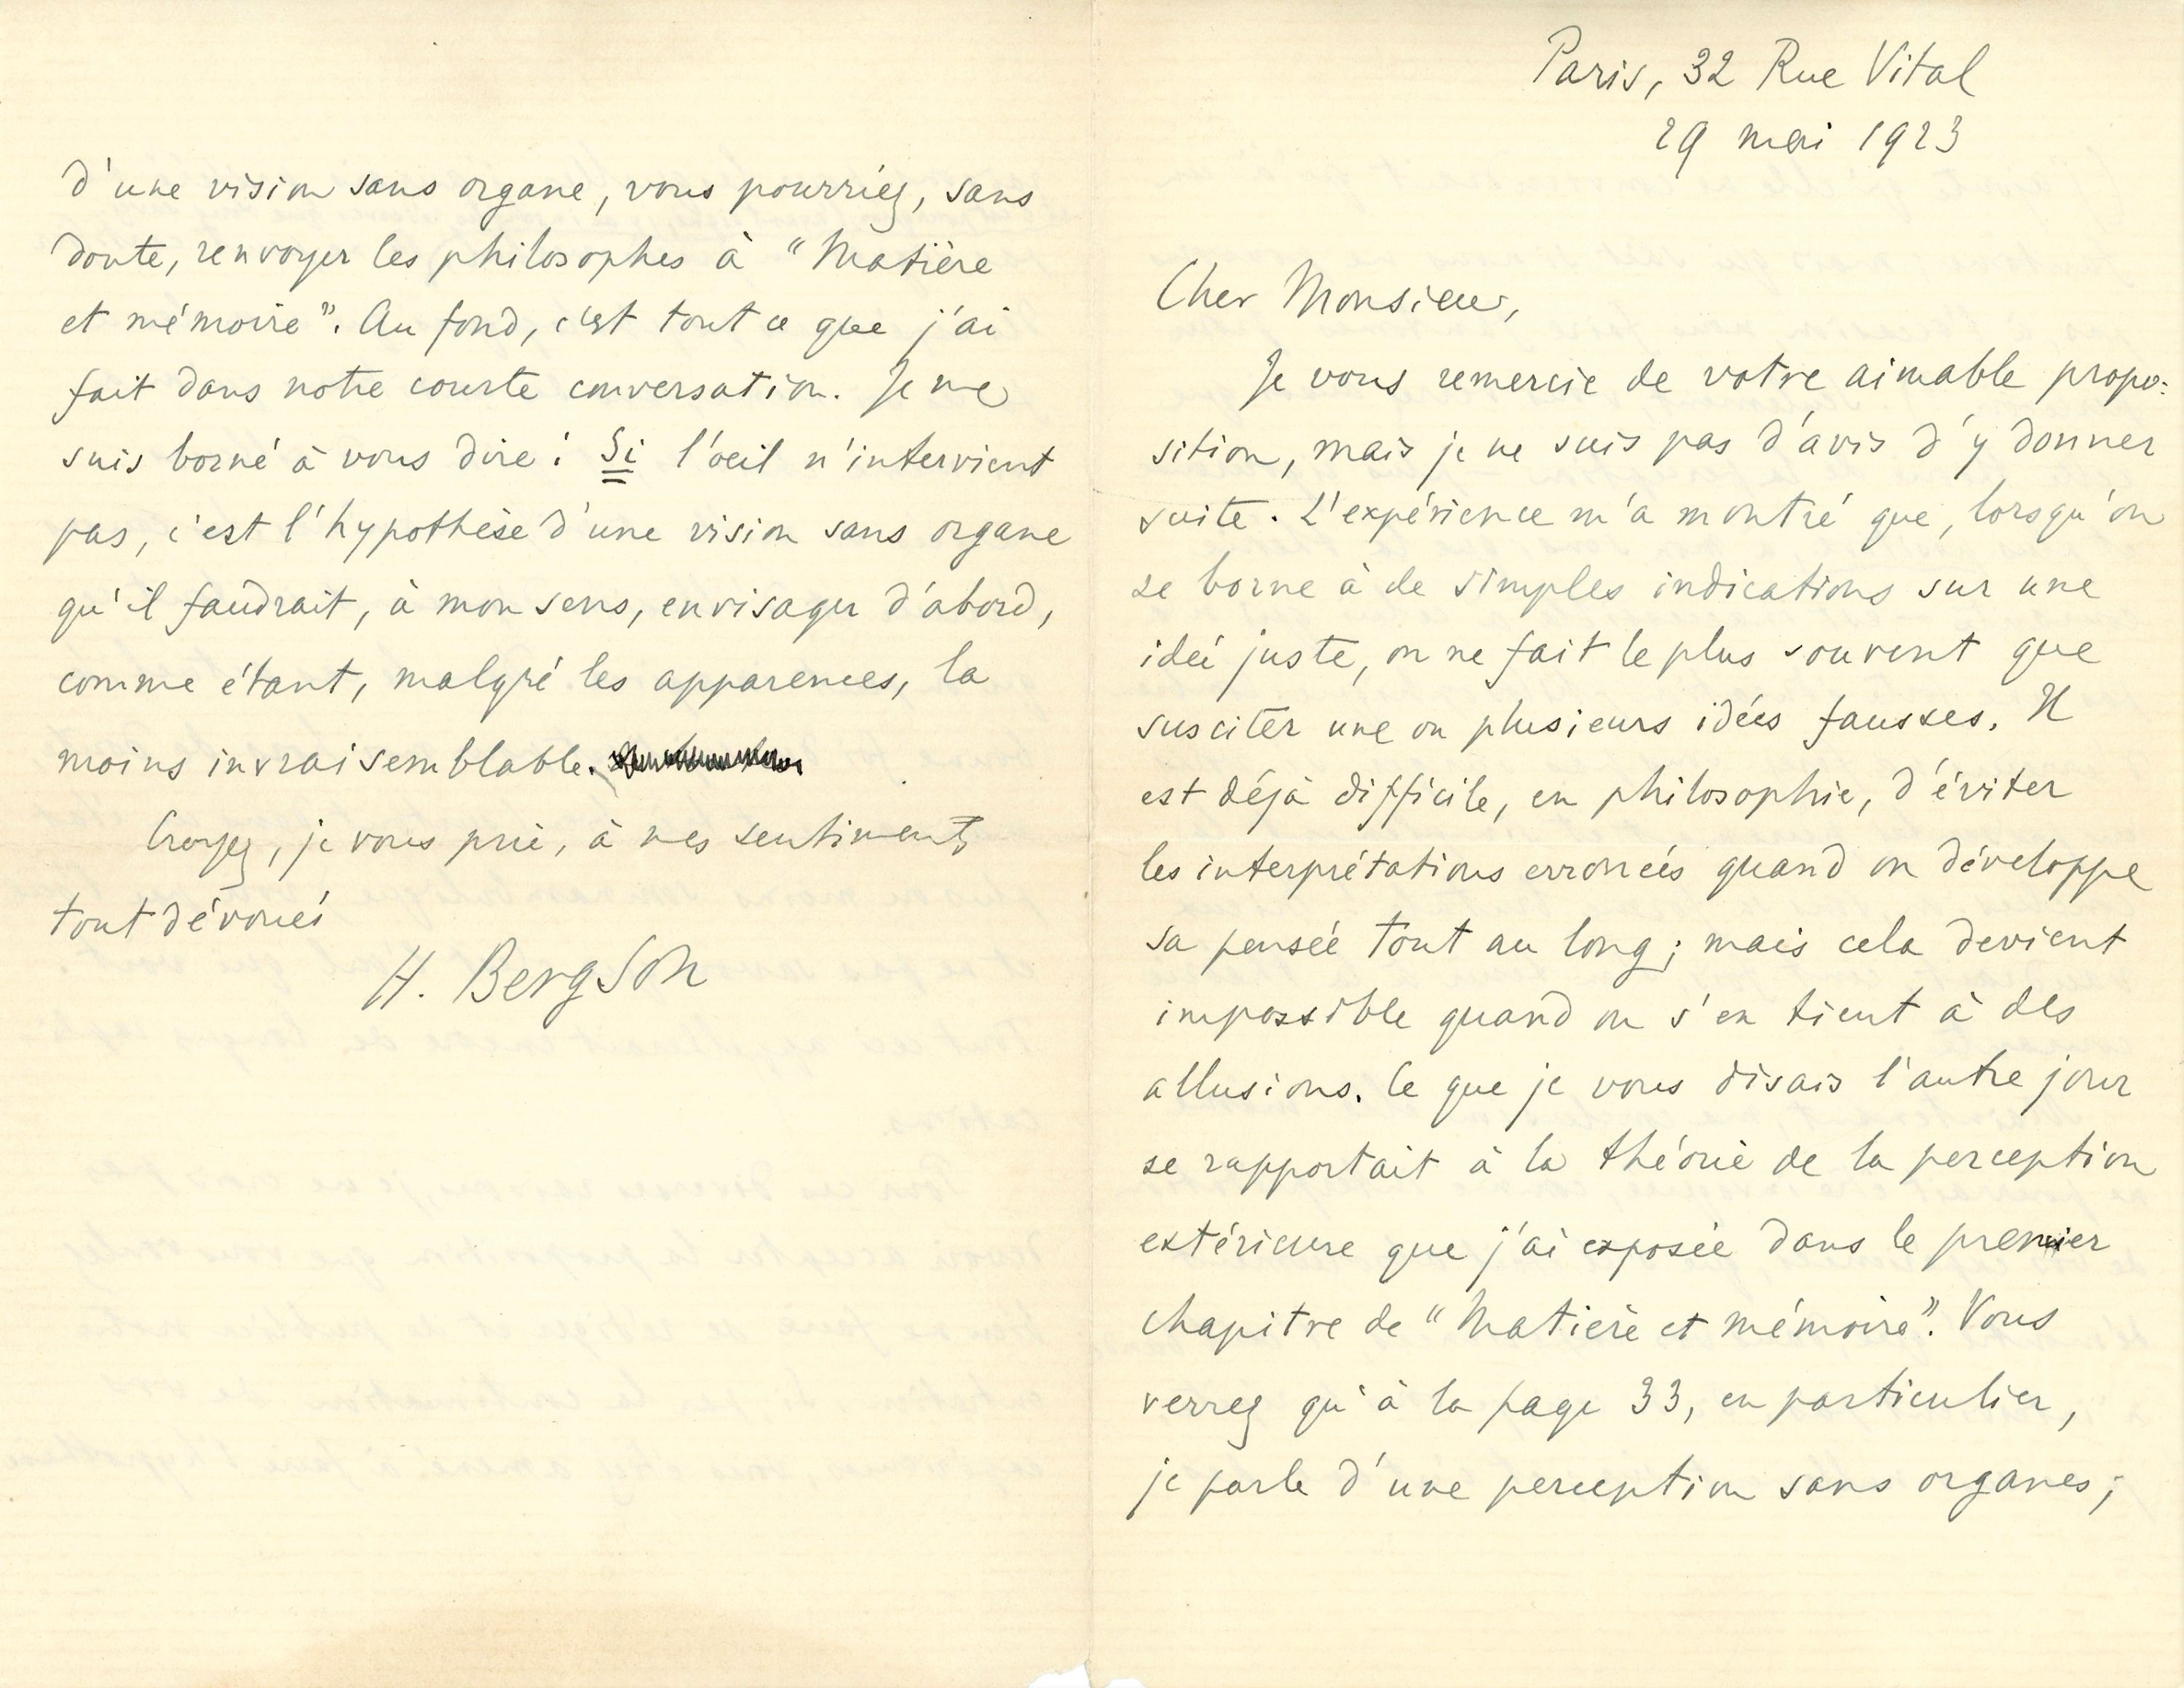 Paris, 32 Rue Vital
29 mai 1923
Cher Monsieur,
Je vous remercie de votre aimable propo-
sition, mais je ne suis pas d'avis d'y donner
suite. L'expérience m'a montré que, lorsqu'on
se borne à de simples indications sur une
idée juste, on ne fait le plus souvent que
susciter une ou plusieurs idées fausses. Il
est déjà difficile, en philosophie, d'éviter
les interprétations erronées quand on développe
sa pensée tout au long ; mais cela devient
impossible quand on s'en tient à des
allusions. Ce que je vous disais l'autre jour
se rapportait à la théorie de la perception
extérieure que j'ai exposée dans le premier
chapitre de "Matière et mémoire". Vous
verrez qu'à la page 33, en particulier,
je parle d'une perception sans organes ;
d'une vision sans organe, vous pourriez, sans
doute, renvoyer les philosophes à "Matière
et mémoire". Au fond, c'est tout ce que j'ai
fait dans notre courte conversation. Je me
suis borné à vous dire : Si l'œil n'intervient
pas, c'est l'hypothèse d'une vision sans organe
qu'il faudrait, à mon sens, envisager d'abord,
comme étant, malgré les apparences, la
moins invraisemblable.
Croyez, je vous prie, à mes sentiments
tout dévoués
H. Bergson